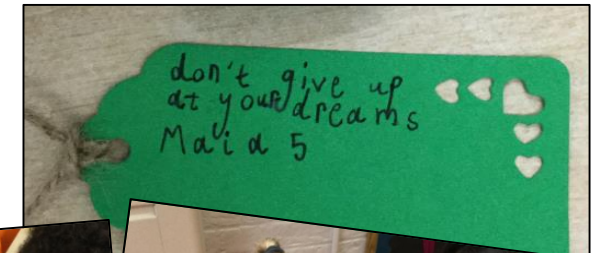 don't give up
at your dreams
Maia 5